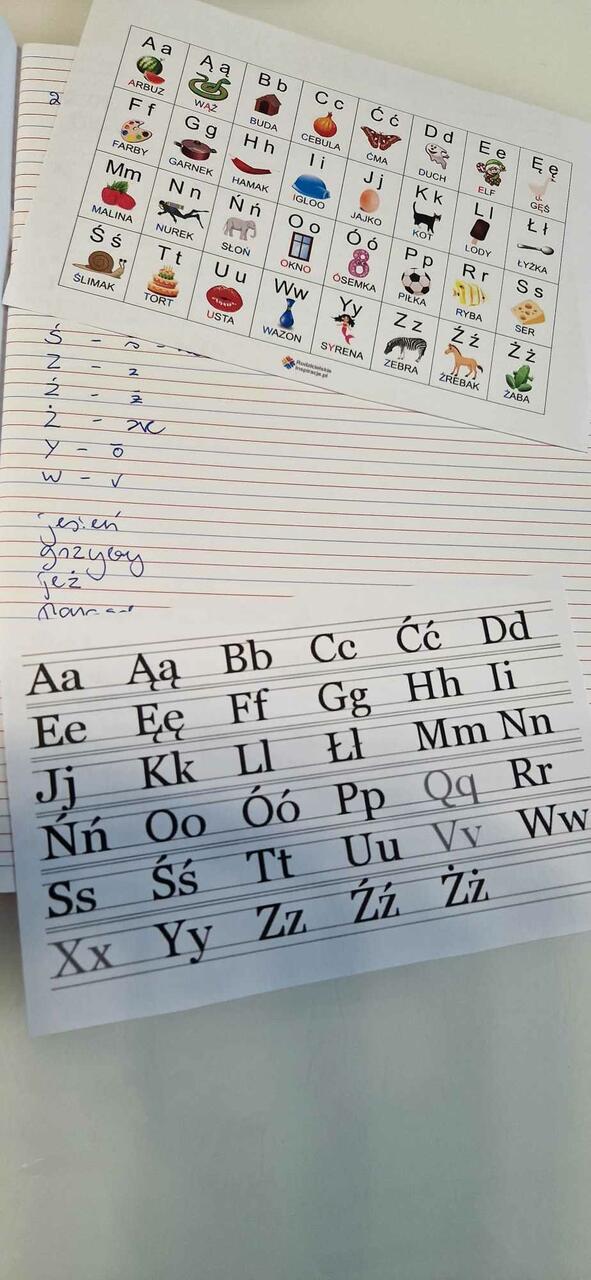 2
Aa Ąą Bb Cc Ćć Dd Ee Ęę
ARBUZ WĄŻ BUDA CEBULA ĆMA DUCH ELF GĘŚ
Ff Gg Hh Ii Jj Kk Ll Łł
FARBY GARNEK HAMAK IGLOO JAJKO KOT LODY ŁYŻKA
Mm Nn Ńń Oo Óó Pp Rr Ss
MALINA NUREK SŁOŃ OKNO ÓSEMKA PIŁKA RYBA SER
Śś Tt Uu Ww Yy Zz Źź Żż
ŚLIMAK TORT USTA WAZON SYRENA ZEBRA ŹREBAK ŻABA
Rodzicielskie
Inspiracje.pl
Ś -
Z - z
Ź -
Ż - ж
Y -
W - v
jesień
grzyby
jeż
Aa Ąą Bb Cc Ćć Dd
Ee Ęę Ff Gg Hh Ii
Jj Kk Ll Łł Mm Nn
Ńń Oo Óó Pp Qq Rr
Ss Śś Tt Uu Vv Ww
Xx Yy Zz Źź Żż